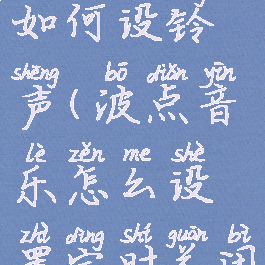 如何设铃
shēng bō diǎn yīn
声(波点音
lè zěn me shè
乐怎么设
zhì dìng shí guān bì
置定时关闭